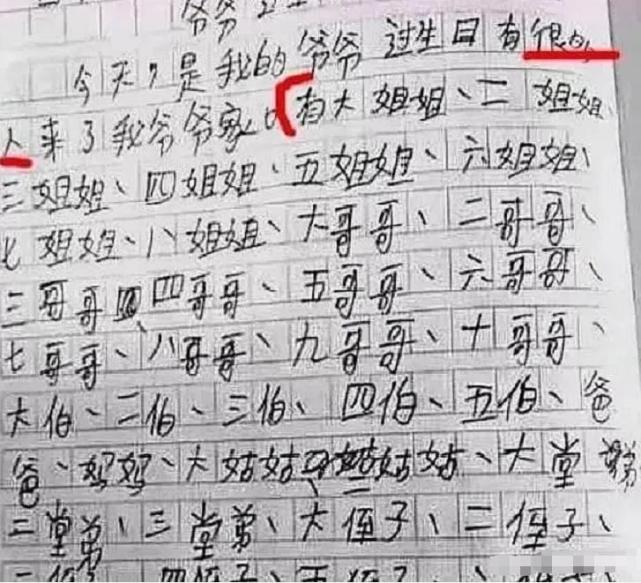 爷爷
今天,是我的爷爷过生日有很多
人来了我爷爷家里有大姐姐、二姐姐、
三姐姐、四姐姐、五姐姐、六姐姐、
七姐姐、八姐姐、大哥哥、二哥哥、
三哥哥、四哥哥、五哥哥、六哥哥、
七哥哥、八哥哥、九哥哥、十哥哥、
大伯、二伯、三伯、四伯、五伯、爸
爸、妈妈、大姑姑、二姑姑、大堂弟
二堂弟、三堂弟、大侄子、二侄子、
三侄子、四侄子、五侄子、